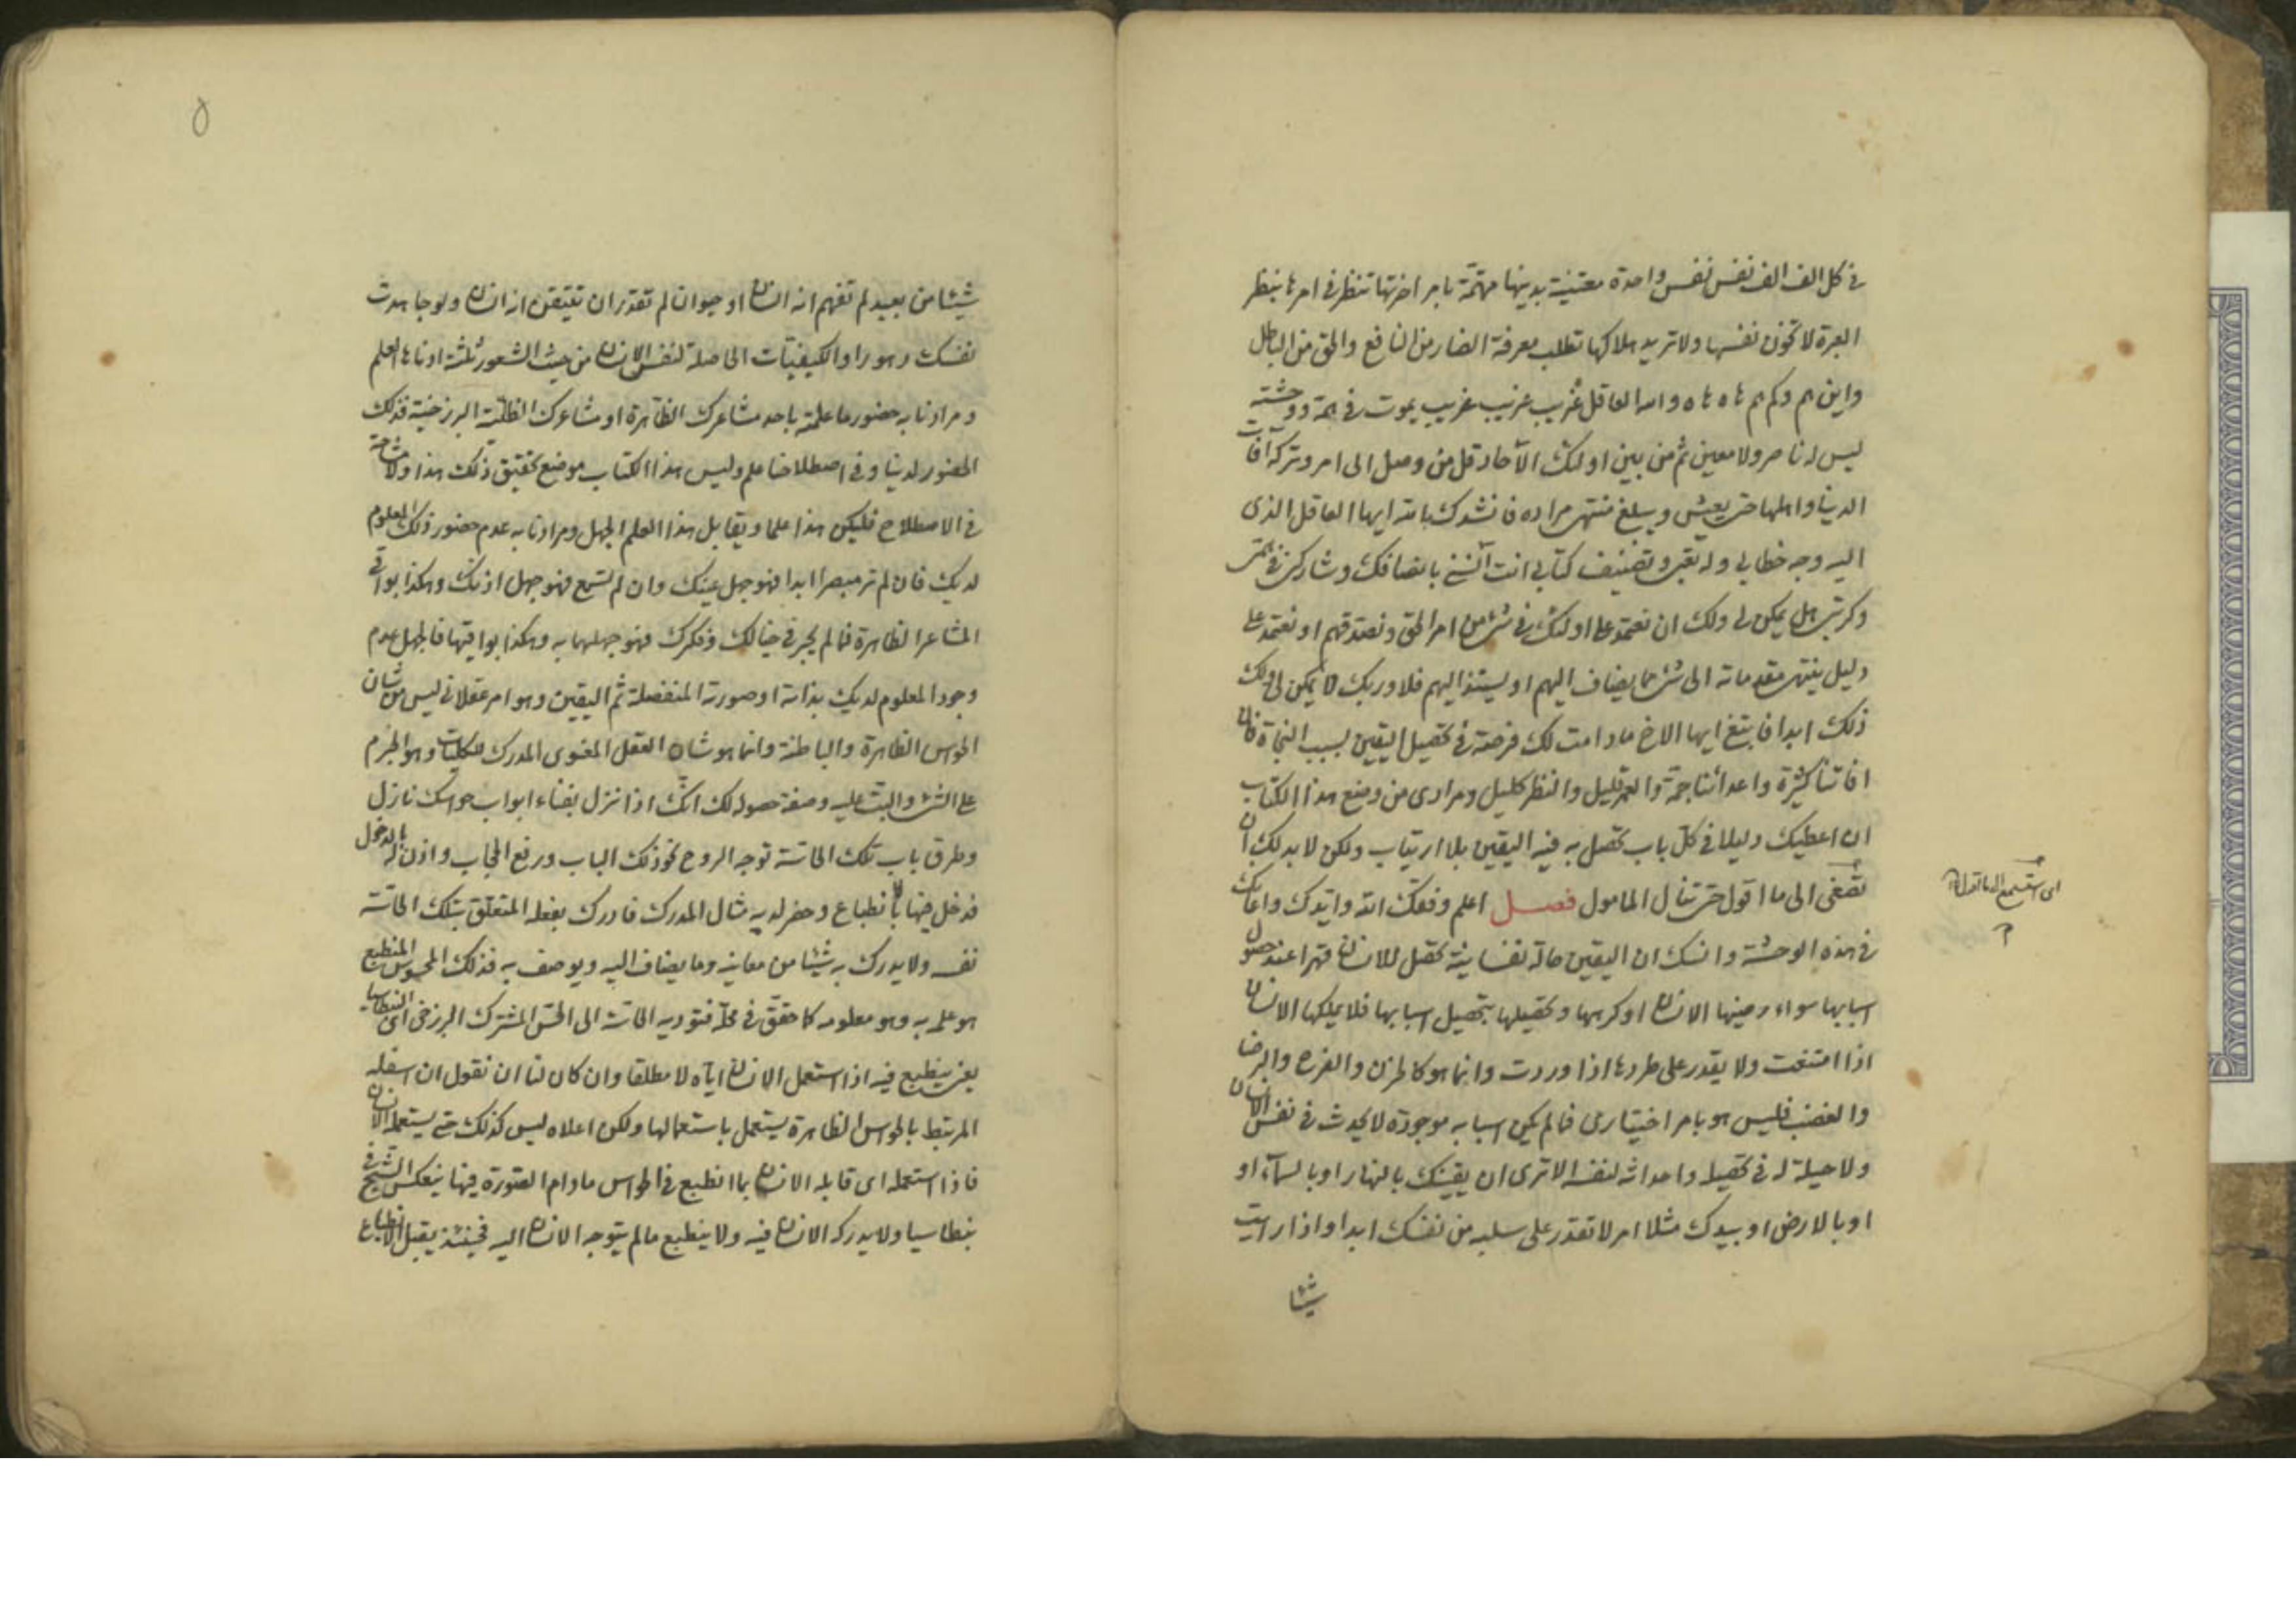 في كل الف الف نفس نفس واحدة معتنية بدينها مهتمة بامر اخرتها تنظر في امرها بنظر
العبرة لا تخون نفسها ولا تريد هلاكها تطلب معرفة الضار من النافع والحق من الباطل
واين هم وكم هم هاه هاه والله العاقل غريب غريب غريب يموت في همه ووحشته
ليس له ناصر ولا معين ثم من بين اولئك الآحاد قل من وصل الى امر وتركه آفات
الدنيا واهلها حتى يعيش ويبلغ منتهى مراده فانشدك بالله ايها العاقل الذي
اليه وجه خطابي وله تعبي وتصنيف كتابي انت آنسني بانصافك وشاركني في همي
وكربتي هل يمكن لي ولك ان نعتمد على اولئك في شئ من امر الحق ونصدقهم او نعتمد على
دليل ينتهي مقدماته الى شئ مما يضاف اليهم او يستند اليهم فلا وربك لا يمكن لي ولك
ذلك ابدا فابتغ ايها الاخ مادامت لك فرصة في تحصيل اليقين لسبب النجاة فان
افاتنا كثيرة واعدائنا جمة والعمر قليل والنظر كليل ومرادي من وضع هذا الكتاب
ان اعطيك دليلا في كل باب تحصل به فيه اليقين بلا ارتياب ولكن لابد لك ان
تصغى الى ما اقول حتى تنال المامول فصل اعلم وفقك الله وايدك واعانك
اى استمع الى ما اقول
في هذه الوحشة وانسك ان اليقين حالة نفسانية تحصل للانسان قهرا عند حصول
اسبابها سواء رضيها الانسان او كرهها وتحصيلها بتحصيل اسبابها فلا يملكها الانسان
اذا امتنعت ولا يقدر على طردها اذا وردت وانما هو كالحزن والفرح والرضا
والغضب فليس هو بامر اختياري فما لم يكن اسبابه موجودة لا يحدث في نفس الانسان
ولا حيلة له في تحصيله واحداثه لنفسه الا ترى ان يقينك بالنهار او بالسماء او
او بالارض او بيدك مثلا امر لا تقدر على سلبه من نفسك ابدا واذا رايت
شيئا
٥
شيئا من بعيد لم تفهم انه انسان او حيوان لم تقدر ان تتيقن انه انسان ولو جاهدت
نفسك وهو را والكيفيات الحاصلة لنفس الانسان من حيث الشعور ثلثة ادناها العلم
ومرادنا به حضور ما علمته باحد مشاعرك الظاهرة او مشاعرك الظلية البرزخية فذلك
الحضور لدينا وفي اصطلاحنا علم وليس هذا الكتاب موضع تحقيق ذلك هذا ولا مشاحة
في الاصطلاح فليكن هذا علما ويقابل هذا العلم الجهل ومرادنا به عدم حضور ذلك المعلوم
لديك فان لم تر مبصرا ابدا فهو جهل عينك وان لم تسمع فهو جهل اذنك وهكذا بواقي
المشاعر الظاهرة فما لم يجر في خيالك وفكرك فهو جهلهما به وهكذا بواقيها فالجهل عدم
وجود المعلوم لديك بذاته او صورته المنفصلة ثم اليقين وهو امر عقلاني ليس من شان
الحواس الظاهرة والباطنة وانما هو شان العقل المعنوي المدرك للكليات وهو الجزم
على الشئ والبت عليه وصفة حصوله لك انك اذا نزل بفناء ابواب حواسك نازل
وطرق باب تلك الحاسة توجه الروح نحو ذلك الباب ورفع الحجاب واذن له بالدخول
فدخل فيها بالانطباع وحضر لديه مثال المدرك فادرك بفعله المتعلق بتلك الحاسة
نفسه ولا يدرك به شيئا من معانيه وما يضاف اليه ويوصف به فذلك المحسوس المنطبع
هو علمه به وهو معلومه كما حقق في محله فتوديه الحاسة الى الحس المشترك البرزخي اى البنطاسيا
يعني ينطبع فيه اذا استعمل الانسان اياه لا مطلقا وان كان لنا ان نقول ان اسفله
المرتبط بالحواس الظاهرة يستعمل باستعمالها ولكن اعلاه ليس كذلك حتى يستعمله الانسان
فاذا استعمله اى قابله الانسان بما انطبع في الحواس مادام الصورة فيها ينعكس الشبح في
بنطاسيا ولا يدركه الانسان فيه ولا ينطبع ما لم يتوجه الانسان اليه فحينئذ يقبل الانطباع